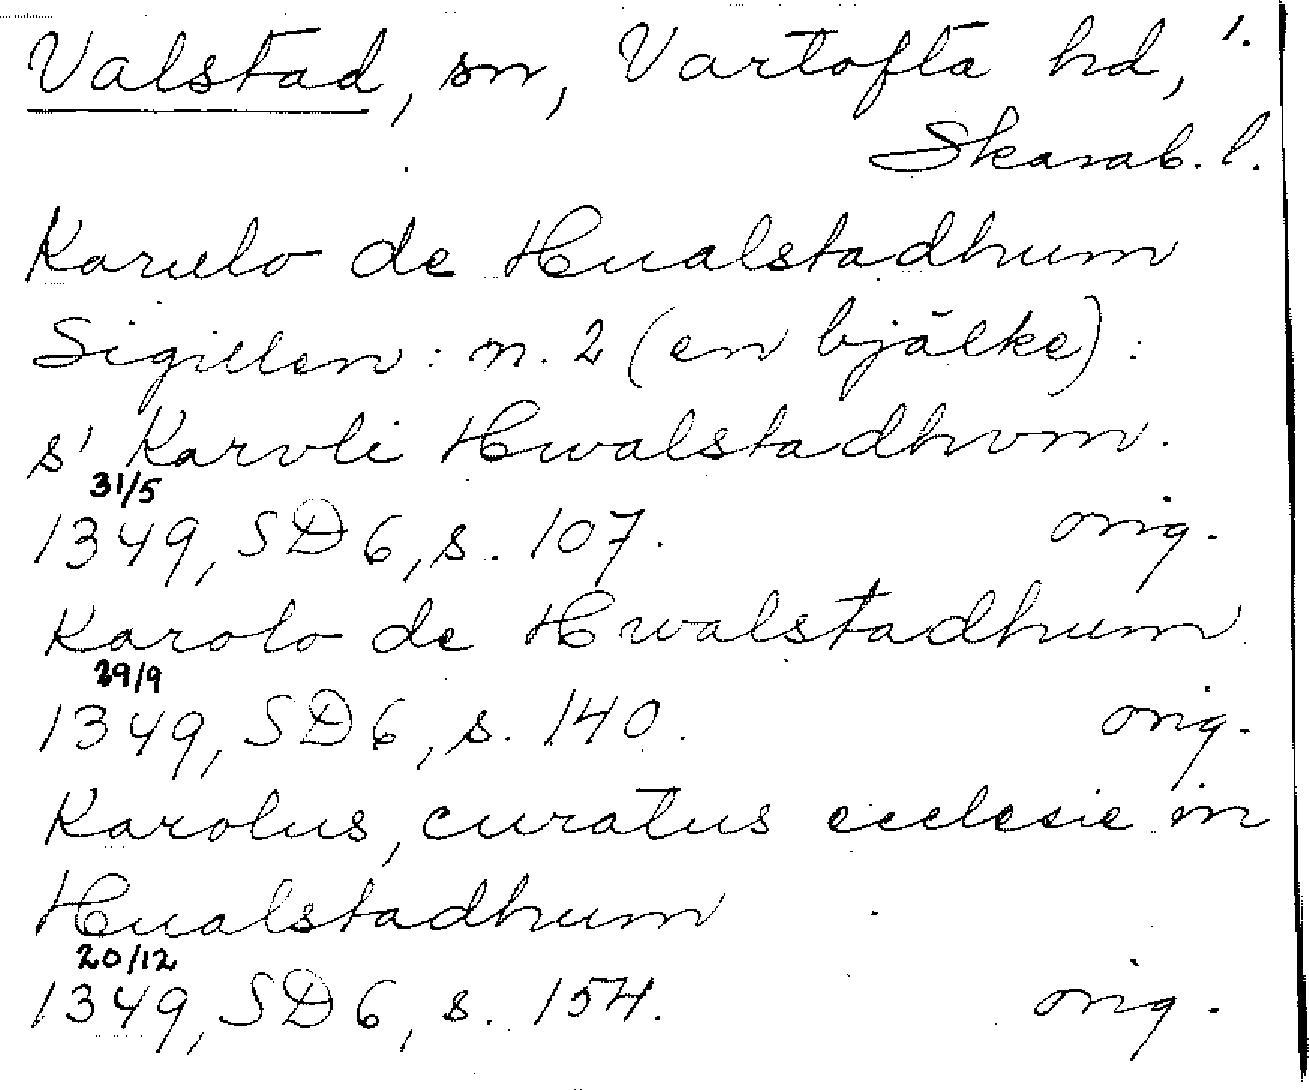 Valstad, sn, Vartofta hd, 1.
Skarab. l.
Karulo de Hualstadhum
Sigillen: n. 2 (en bjälke):
s' Karvli Hwalstadhvm.
31/5
1349, SD 6, s. 107. orig.
Karolo de Hwalstadhum
29/9
1349, SD 6, s. 140. orig.
Karolus, curatus ecclesie in
Hualstadhum
20/12
1349, SD 6, s. 154. orig.